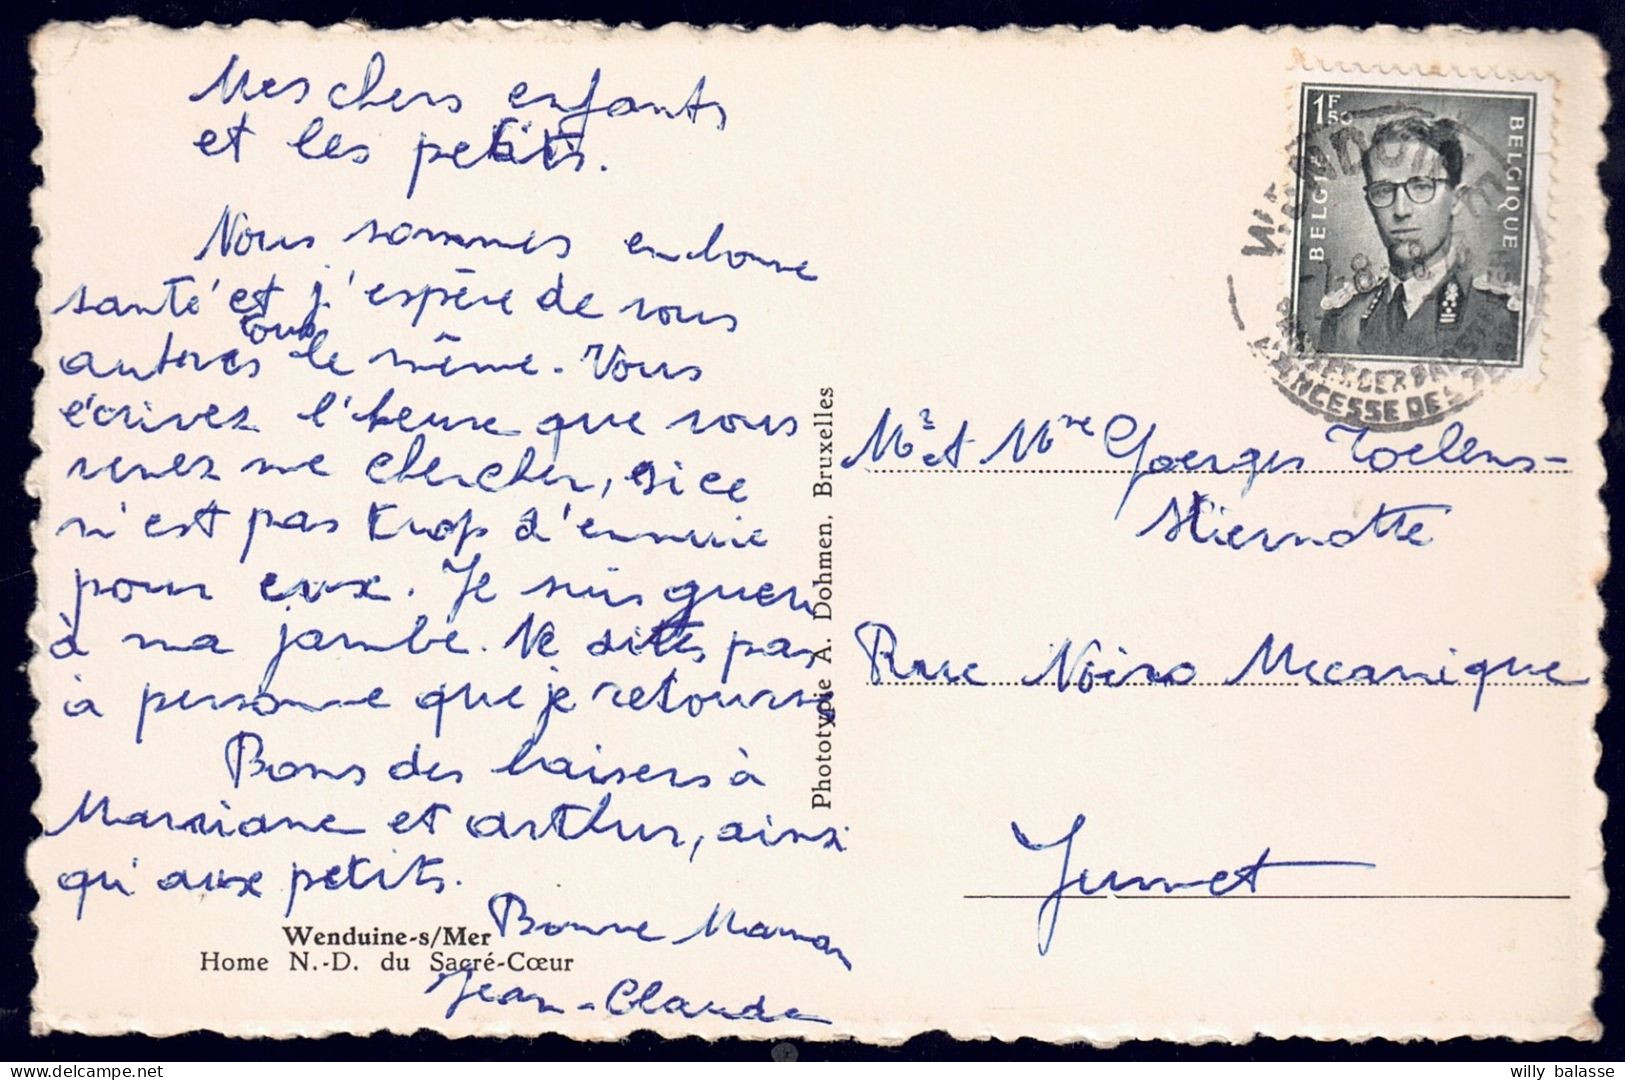 Mes chers enfants
et les petits.
Nous sommes en bonne
santé et j'espère de vous
tous
autres le même. Vous
écrivez l'heure que vous
venez me chercher, si ce
n'est pas trop d'ennuie
pour eux. Je suis gueri
à ma jambe. Ne dites pas
à personne que je retourne
Bons des baisers à
Marriane et arthur, ainsi
qu'aux petits.
Bonne Maman
Jean-Claude
Wenduine-s/Mer
Home N.-D. du Sacré-Cœur
Phototypie A. Dohmen, Bruxelles
1F50
BELGIE
BELGIQUE
WENDUINE
Mr et Mme Goerges Toelens-
Hiernotte
Rue Noiro Mecanique
Jumet
willy balasse